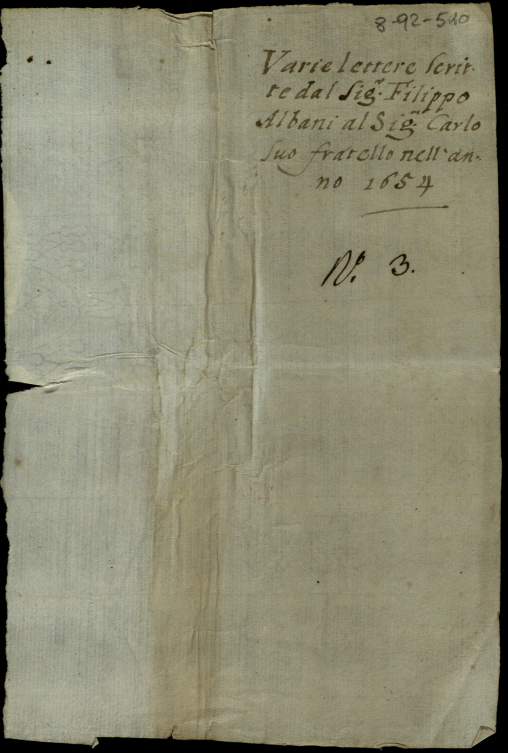 8-92-540
Varie lettere scrit-
te dal Sig.r Filippo
Albani al Sig.r Carlo
suo fratello nell'an-
no 1654
N.o 3.